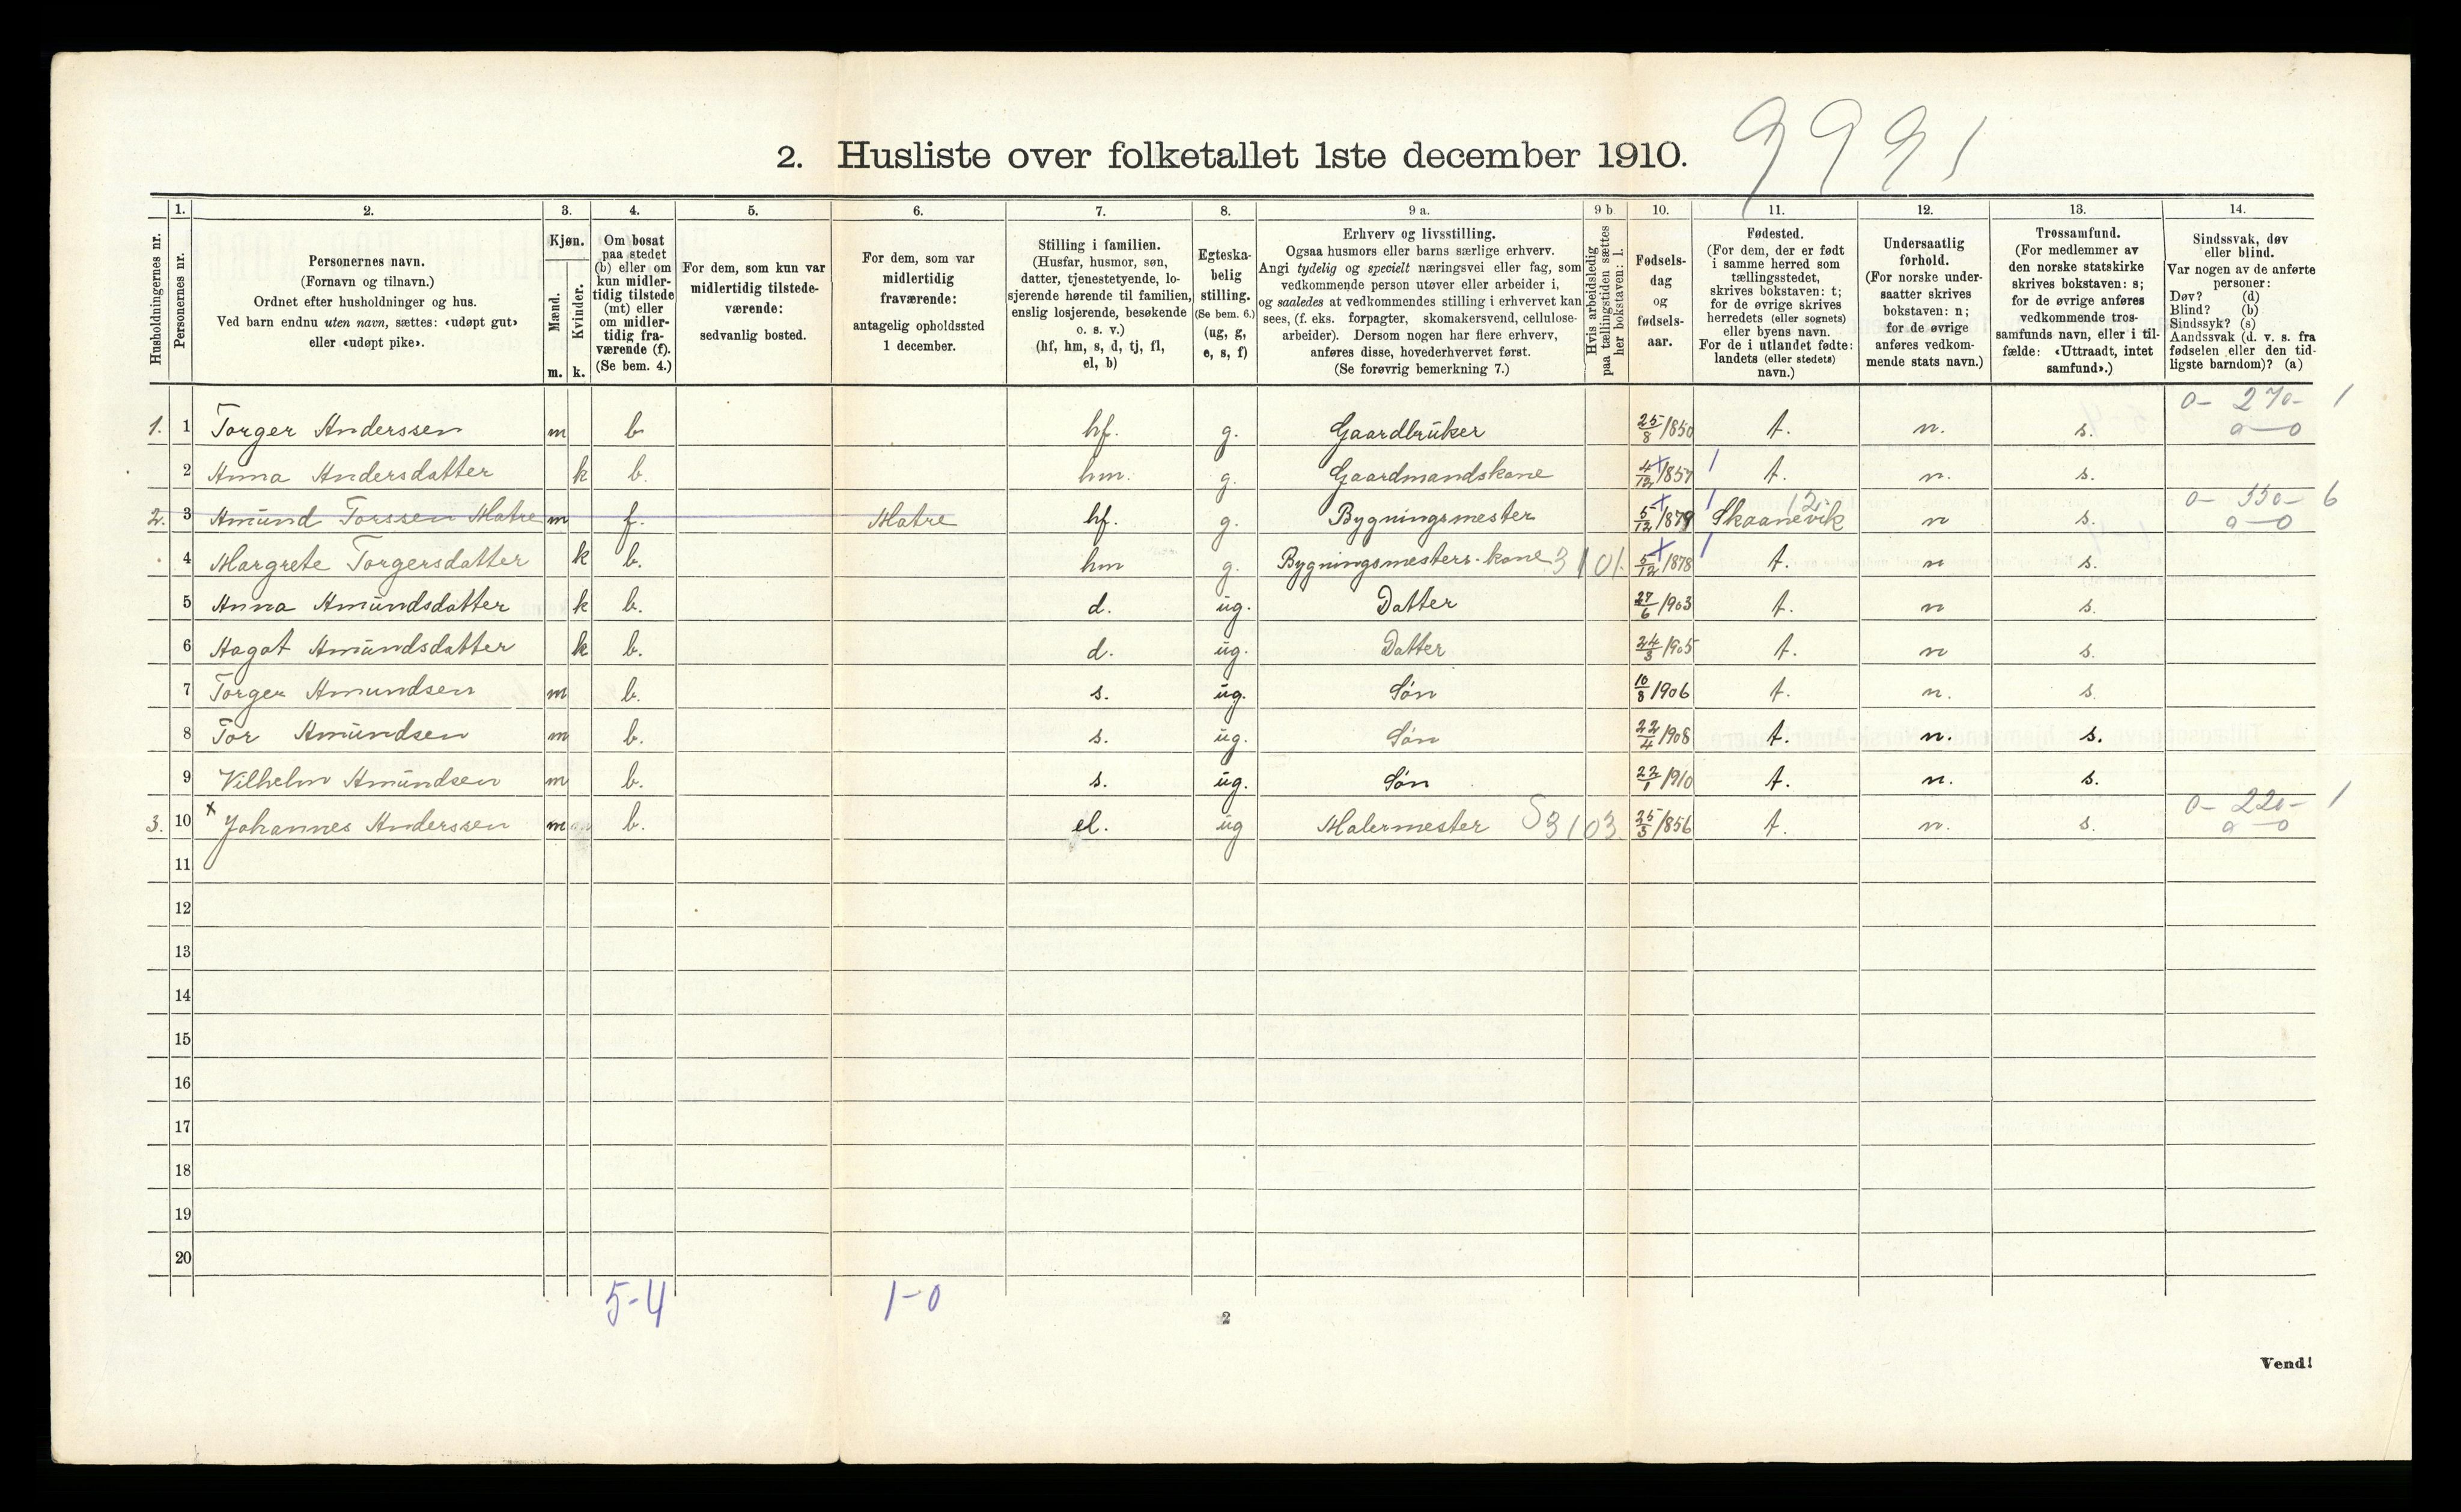 9991
2. Husliste over folketallet 1ste december 1910.
Husholdningernes nr.
1. Personernes nr.
2. Personernes navn. (Fornavn og tilnavn.) Ordnet efter husholdninger og hus. Ved barn endnu uten navn, sættes: «udøpt gut» eller «udøpt pike».
3. Kjøn. Mænd. m. Kvinder. k.
4. Om bosat paa stedet (b) eller om kun midlertidig tilstede (mt) eller om midlertidig fraværende (f). (Se bem. 4.)
5. For dem, som kun var midlertidig tilstedeværende: sedvanlig bosted.
6. For dem, som var midlertidig fraværende: antagelig opholdssted 1 december.
7. Stilling i familien. (Husfar, husmor, søn, datter, tjenestetyende, losjerende hørende til familien, enslig losjerende, besøkende o. s. v.) (hf, hm, s, d, tj, fl, el, b)
8. Egteskabelig stilling. (Se bem. 6.) (ug, g, e, s, f)
9 a. Erhverv og livsstilling. Ogsaa husmors eller barns særlige erhverv. Angi tydelig og specielt næringsvei eller fag, som vedkommende person utøver eller arbeider i, og saaledes at vedkommendes stilling i erhvervet kan sees, (f. eks. forpagter, skomakersvend, cellulosearbeider). Dersom nogen har flere erhverv, anføres disse, hovederhvervet først. (Se forøvrig bemerkning 7.)
9 b Hvis arbeidsledig paa tællingstiden sættes her bokstaven: l.
10. Fødselsdag og fødselsaar.
11. Fødested. (For dem, der er født i samme herred som tællingsstedet, skrives bokstaven: t; for de øvrige skrives herredets (eller sognets) eller byens navn. For de i utlandet fødte: landets (eller stedets) navn.)
12. Undersaatlig forhold. (For norske undersaatter skrives bokstaven: n; for de øvrige anføres vedkommende stats navn.)
13. Trossamfund. (For medlemmer av den norske statskirke skrives bokstaven: s; for de øvrige anføres vedkommende trossamfunds navn, eller i tilfælde: «Uttraadt, intet samfund».)
14. Sindssvak, døv eller blind. Var nogen av de anførte personer: Døv? (d) Blind? (b) Sindssyk? (s) Aandssvak (d. v. s. fra fødselen eller den tidligste barndom)? (a)
1. 1 Torger Anderssen m b. hf. g. Gaardbrüker 25/8 1850 t. n. s. 0 - 270 - 1 0 - 0
2 Anna Andersdatter k b. hm. g. Gaardmandskone 4/12 1857 t. n. s.
2. 3 Amünd Torssen Matre m f. Matre hf. g. Bygningsmester 5/12 1879 Skaanevik 12 n s. 0 - 330 - 6 0 - 0
4 Margrete Torgersdatter k b. hm g. Bygningsmesters-kone 3101. 5/12 1878 t. n s.
5 Anna Amündsdatter k b. d. üg. Datter 27/6 1903 t. n s.
6 Aagot Amündsdatter k b. d. üg. Datter 24/3 1905 t. n s.
7 Torger Amundsen m b. s. üg. Søn 10/8 1906 t. n. s.
8 Tor Amündsen m b. s. üg. Søn 22/4 1908 t. n. s.
9 Vilhelm Amündsen m b. s. üg. Søn 22/1 1910 t. n. s.
3. 10 x Johannes Anderssen m b. el. üg Malermester S3103. 25/3 1856 t. n. s. 0 - 220 - 1 0 - 0
11
12
13
14
15
16
17
18
19
20
5-4 1-0
2
Vend!